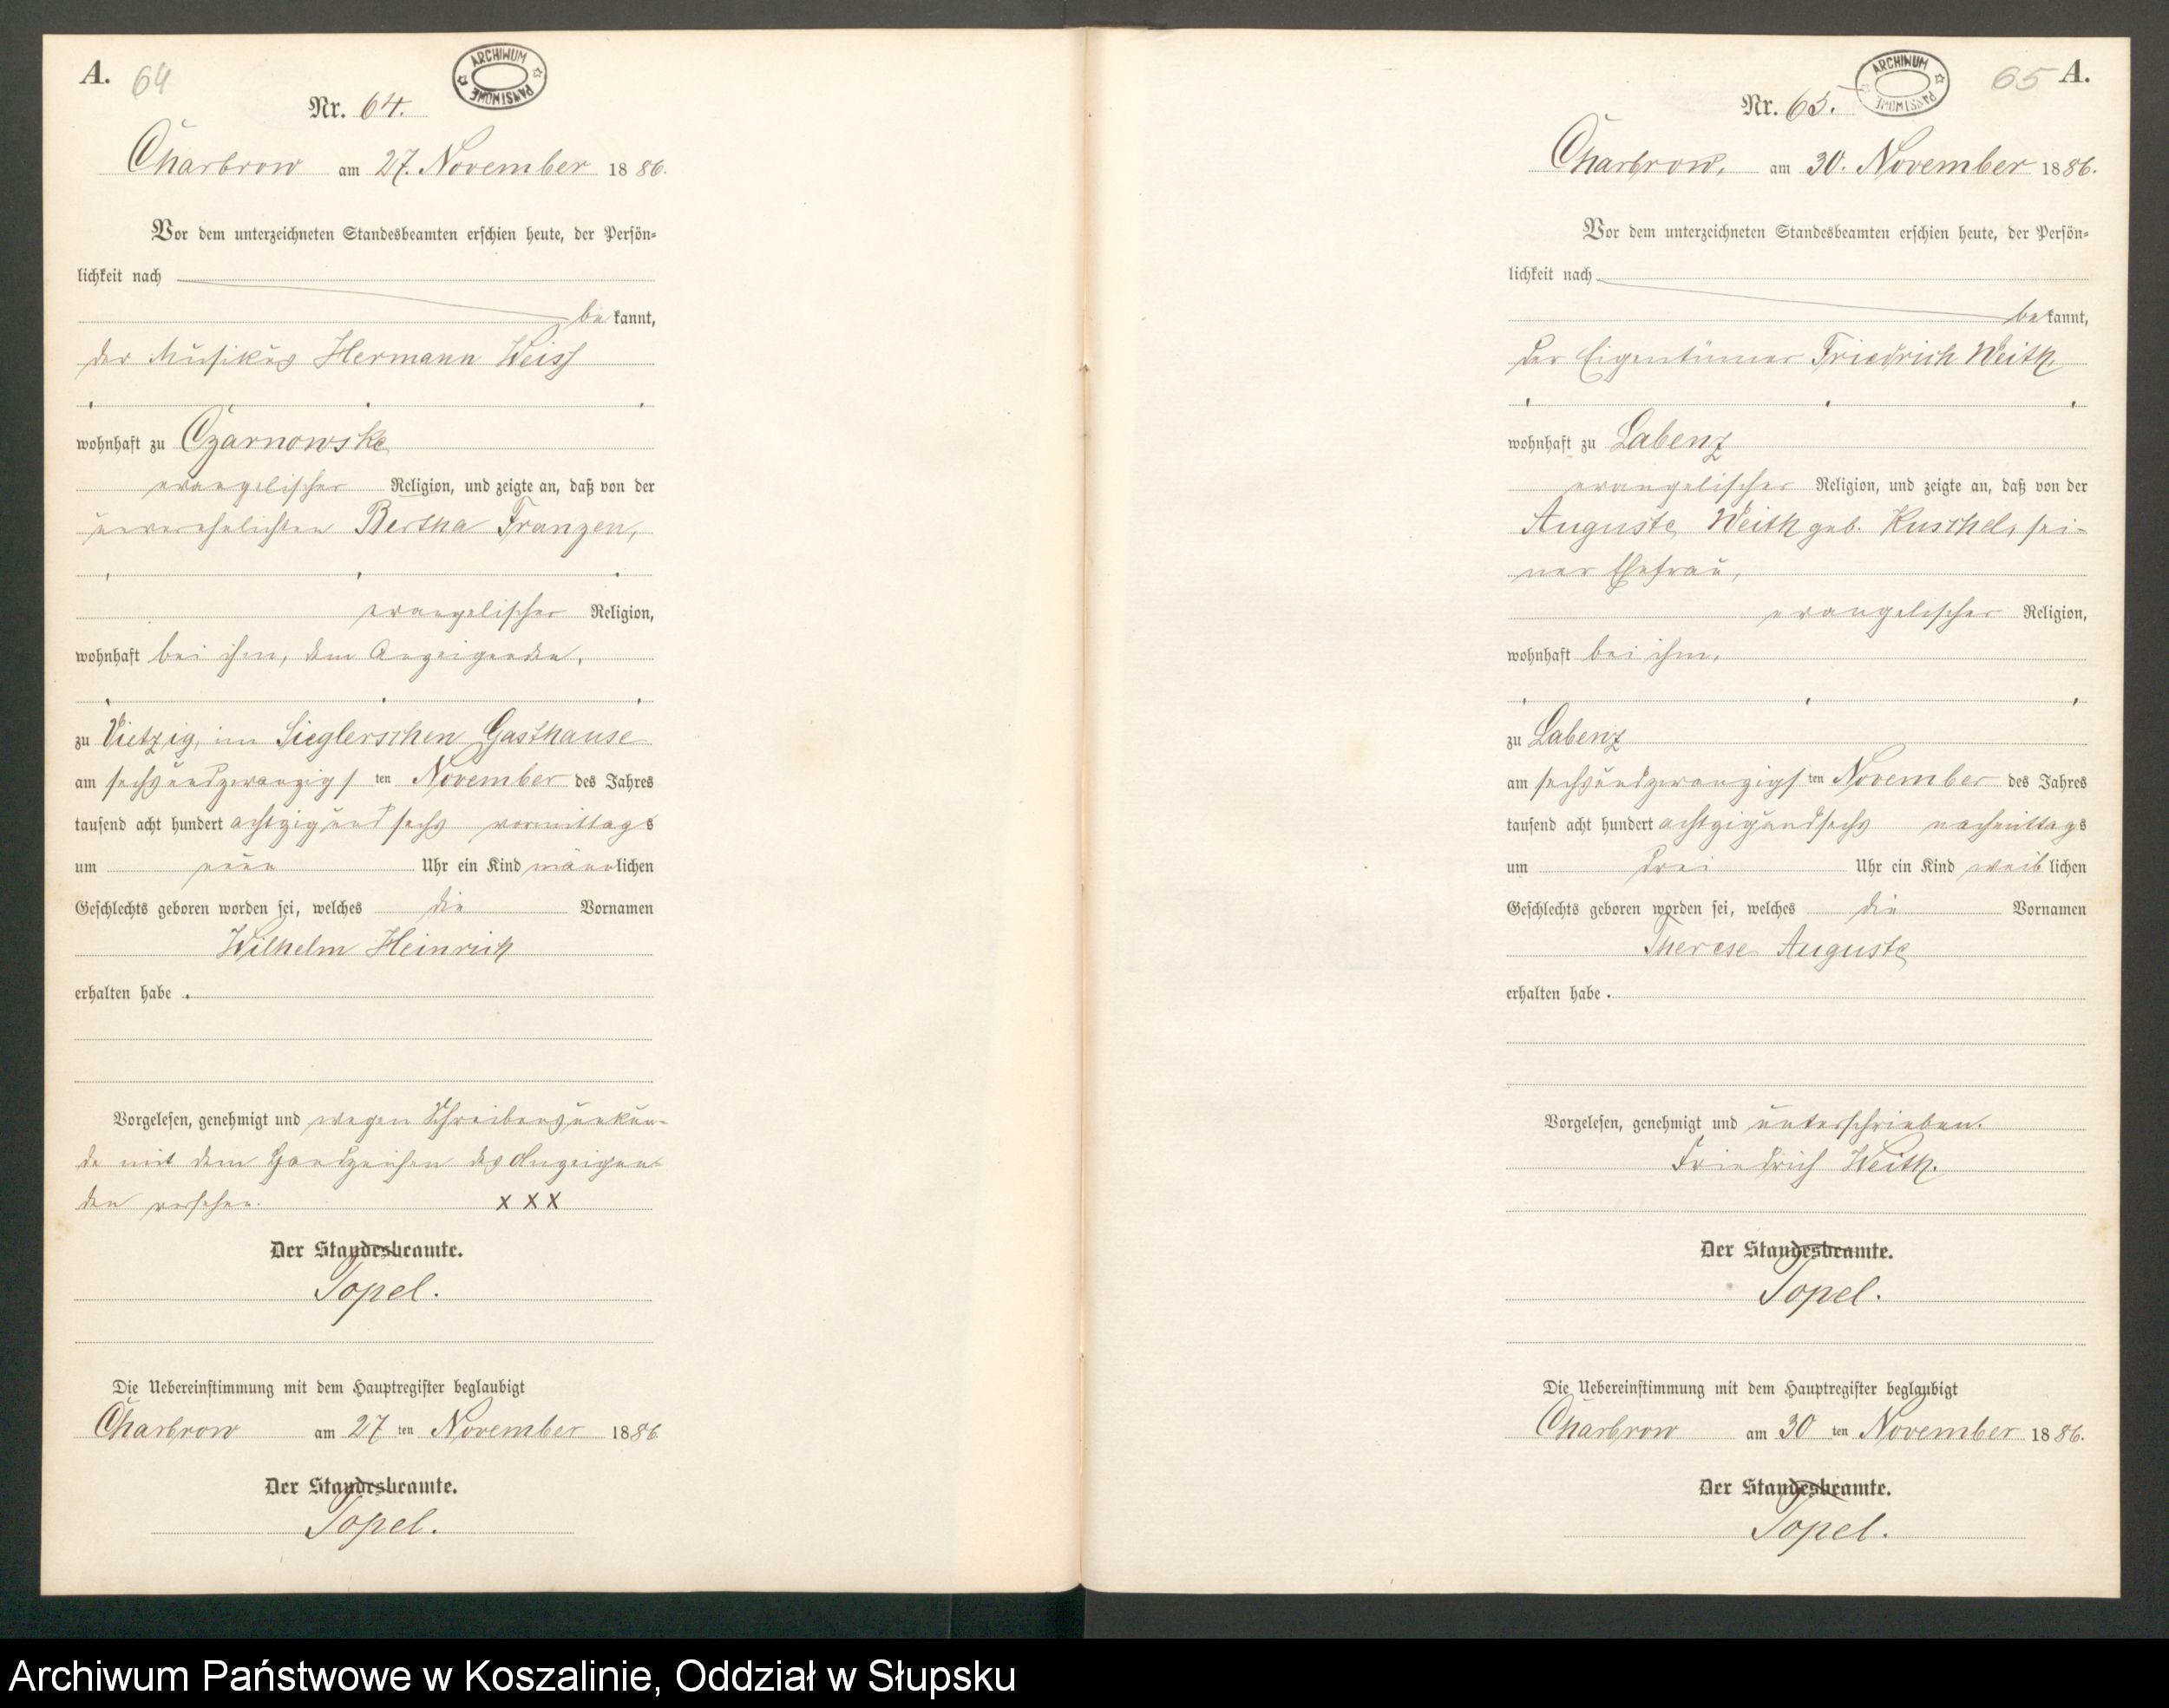 A. 64
ARCHIWUM PAŃSTWOWE
Nr. 64.
Charbrow am 27. November 1886.
Vor dem unterzeichneten Standesbeamten erschien heute, der Persön-
lichkeit nach
bekannt,
der Musikus Hermann Weiß
wohnhaft zu Czarnowske
evangelischer Religion, und zeigte an, daß von der
unverehelichten Bertha Franzen,
evangelischer Religion,
wohnhaft bei ihm, dem Anzeigenden,
zu Vietzig, im Sieglerschen Gasthause
am sechsundzwanzigsten November des Jahres
tausend acht hundert achtzigundsechs vormittags
um neun Uhr ein Kind männlichen
Geschlechts geboren worden sei, welches die Vornamen
Wilhelm Heinrich
erhalten habe.
Vorgelesen, genehmigt und wegen Schreibensunkun-
de mit dem Handzeichen des Anzeigen-
den versehen. XXX
Der Standesbeamte.
Topel.
Die Uebereinstimmung mit dem Hauptregister beglaubigt
Charbrow am 27ten November 1886
Der Standesbeamte.
Topel.
65 A.
ARCHIWUM PAŃSTWOWE
Nr. 65.
Charbrow, am 30. November 1886.
Vor dem unterzeichneten Standesbeamten erschien heute, der Persön-
lichkeit nach
bekannt,
der Eigentümer Friedrich Weith,
wohnhaft zu Labenz
evangelischer Religion, und zeigte an, daß von der
Auguste Weith geb. Kuschel, sei-
ner Ehefrau,
evangelischer Religion,
wohnhaft bei ihm,
zu Labenz
am sechsundzwanzigsten November des Jahres
tausend acht hundert achtzigundsechs nachmittags
um drei Uhr ein Kind weiblichen
Geschlechts geboren worden sei, welches die Vornamen
Therese Auguste
erhalten habe.
Vorgelesen, genehmigt und unterschrieben.
Friedrich Weith.
Der Standesbeamte.
Topel.
Die Uebereinstimmung mit dem Hauptregister beglaubigt
Charbrow am 30ten November 1886.
Der Standesbeamte.
Topel.
Archiwum Państwowe w Koszalinie, Oddział w Słupsku